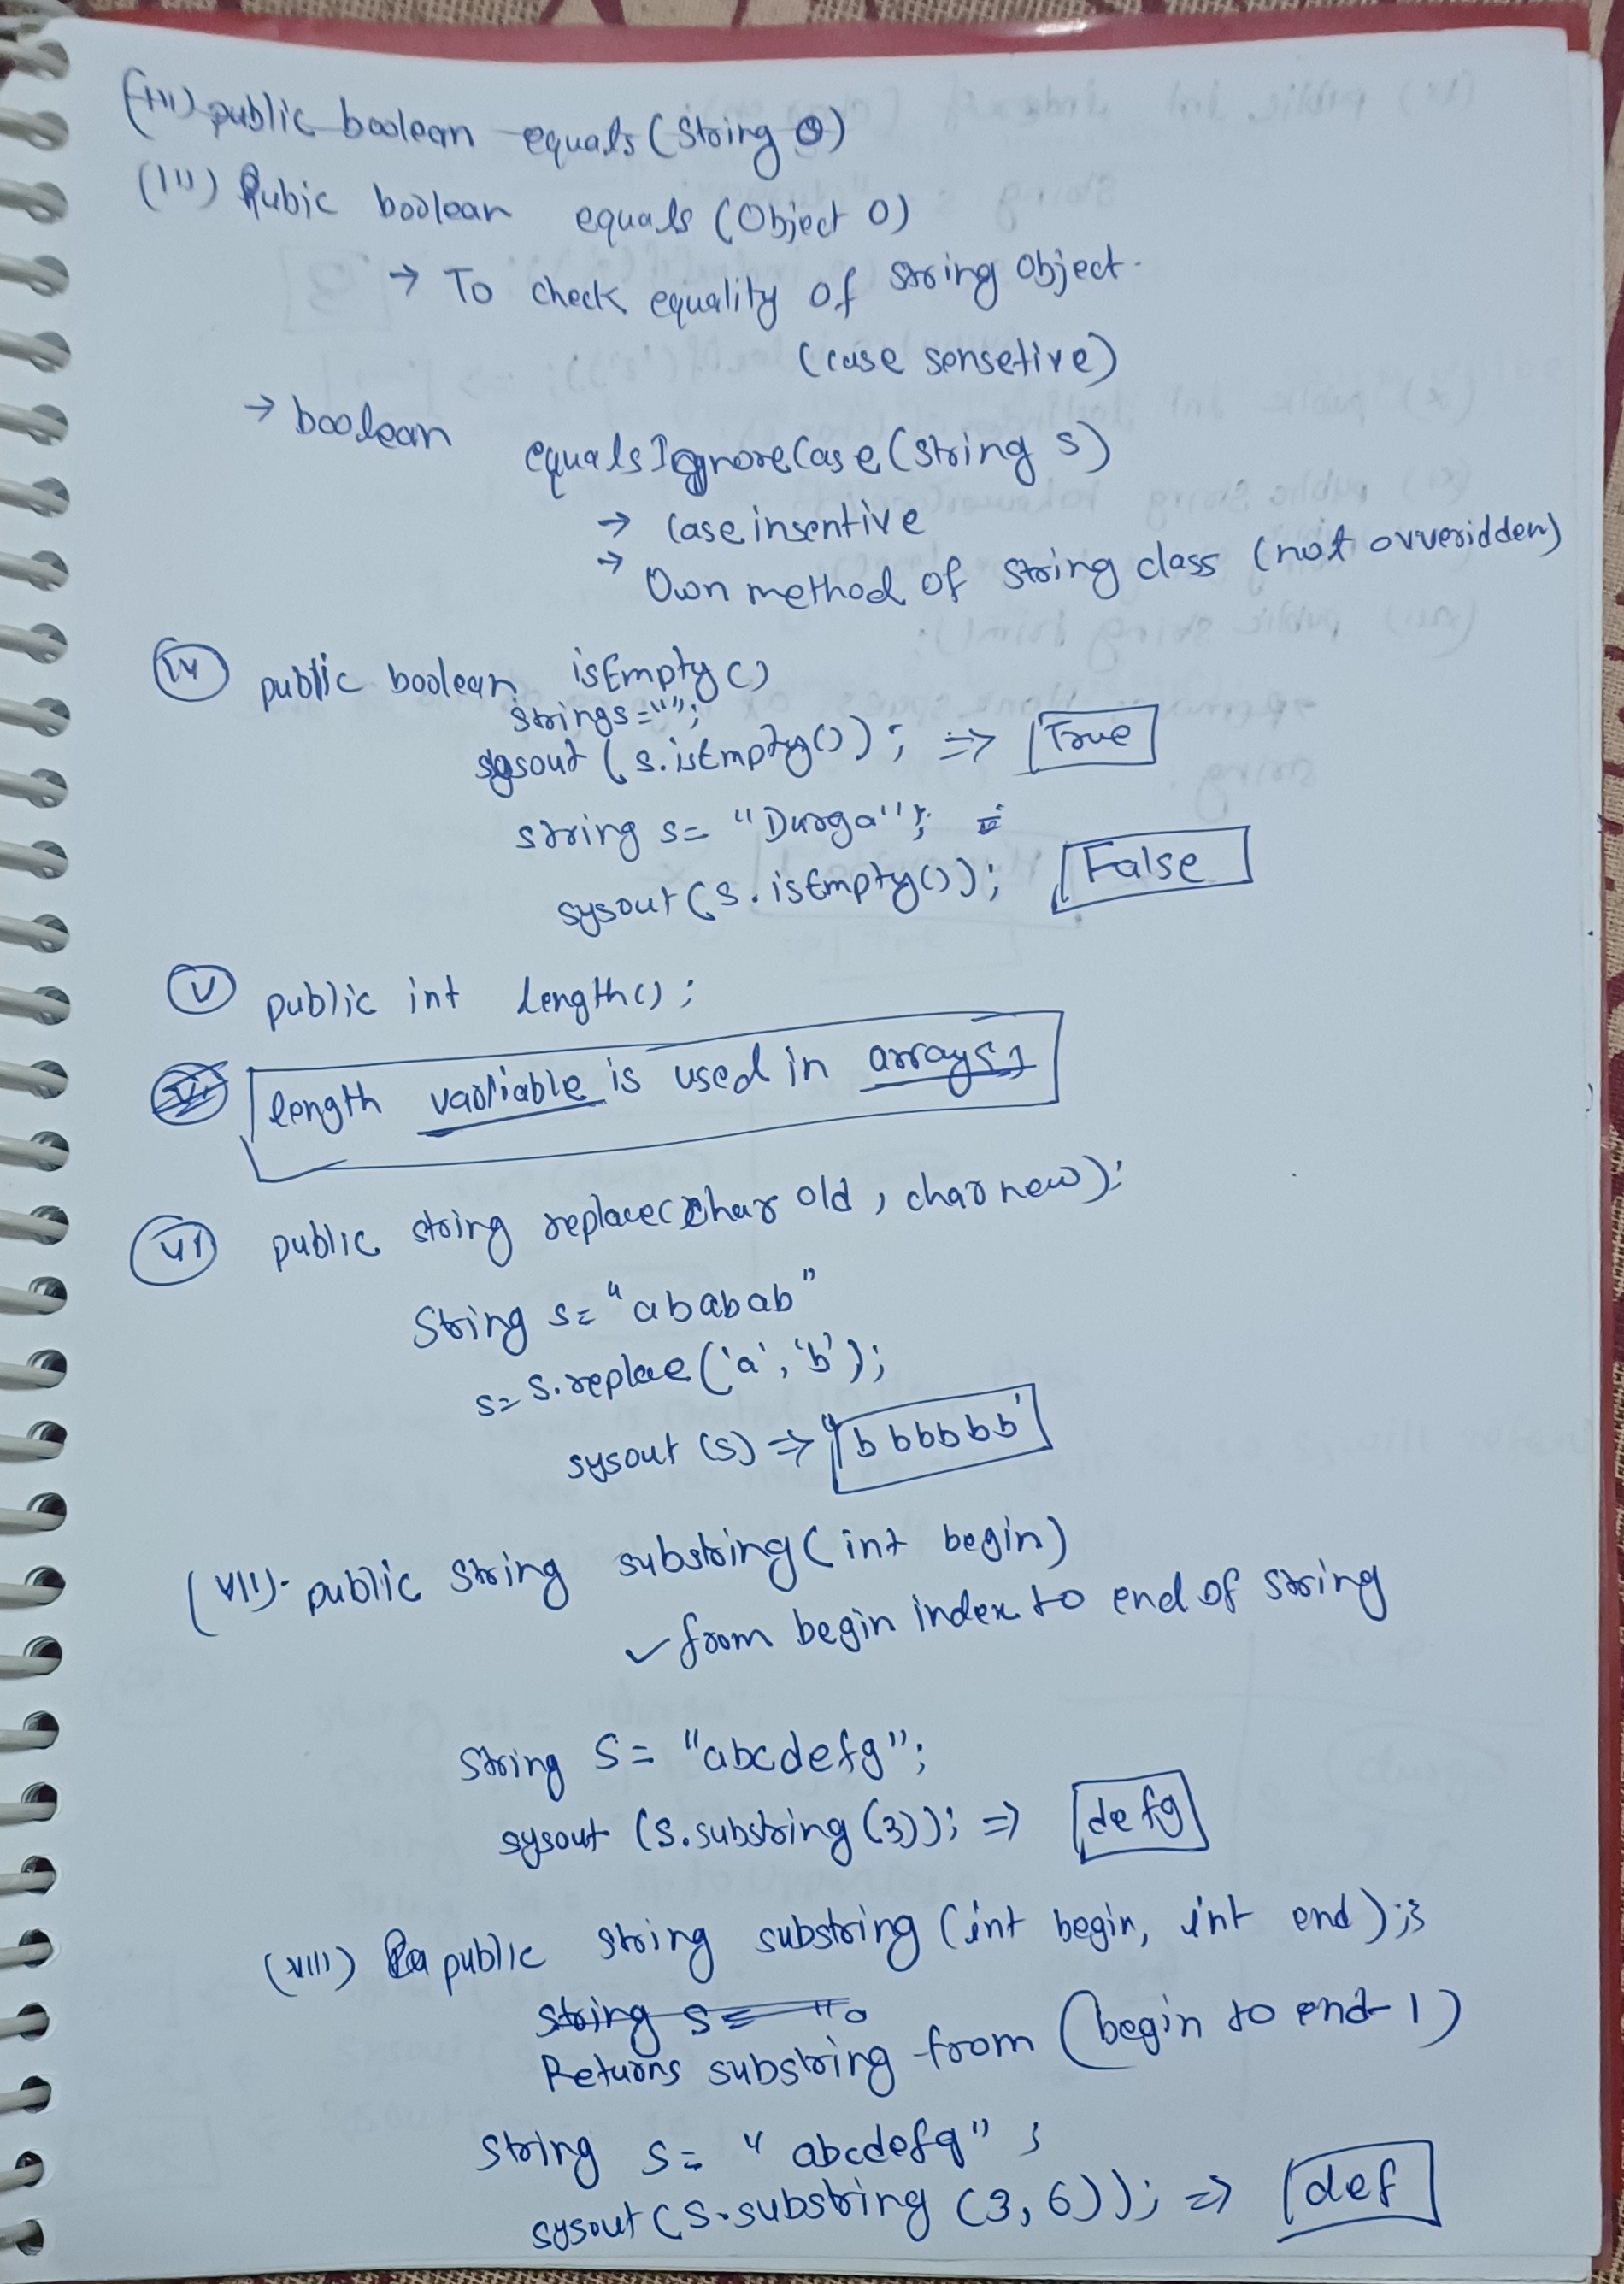 (iii) public boolean equals (String O)
(iii) Pubic boolean equals (Object O)
→ To check equality of string object.
(case sensetive)
→ boolean equalsIgnoreCase (String s)
→ case insentive
→ Own method of string class (not ovveridden)
(iv) public boolean isEmpty ()
String s = "";
sysout (s.isEmpty()); ⇒ True
string s = "Durga";
sysout (s.isEmpty()); False
(v) public int length();
length variable is used in arrays
(vi) public string replace(char old, char new);
String s = "ababab"
s = s.replace ('a', 'b');
sysout (s) ⇒ "bbbbbb"
(VII). public String substring (int begin)
✓ from begin index to end of string
String S = "abcdefg";
sysout (s.substring (3)); ⇒ defg
(VIII) public String substring (int begin, int end);
string s = "
Returns substring from (begin to end-1)
String s = "abcdefg";
sysout (s.substring (3, 6)); ⇒ def